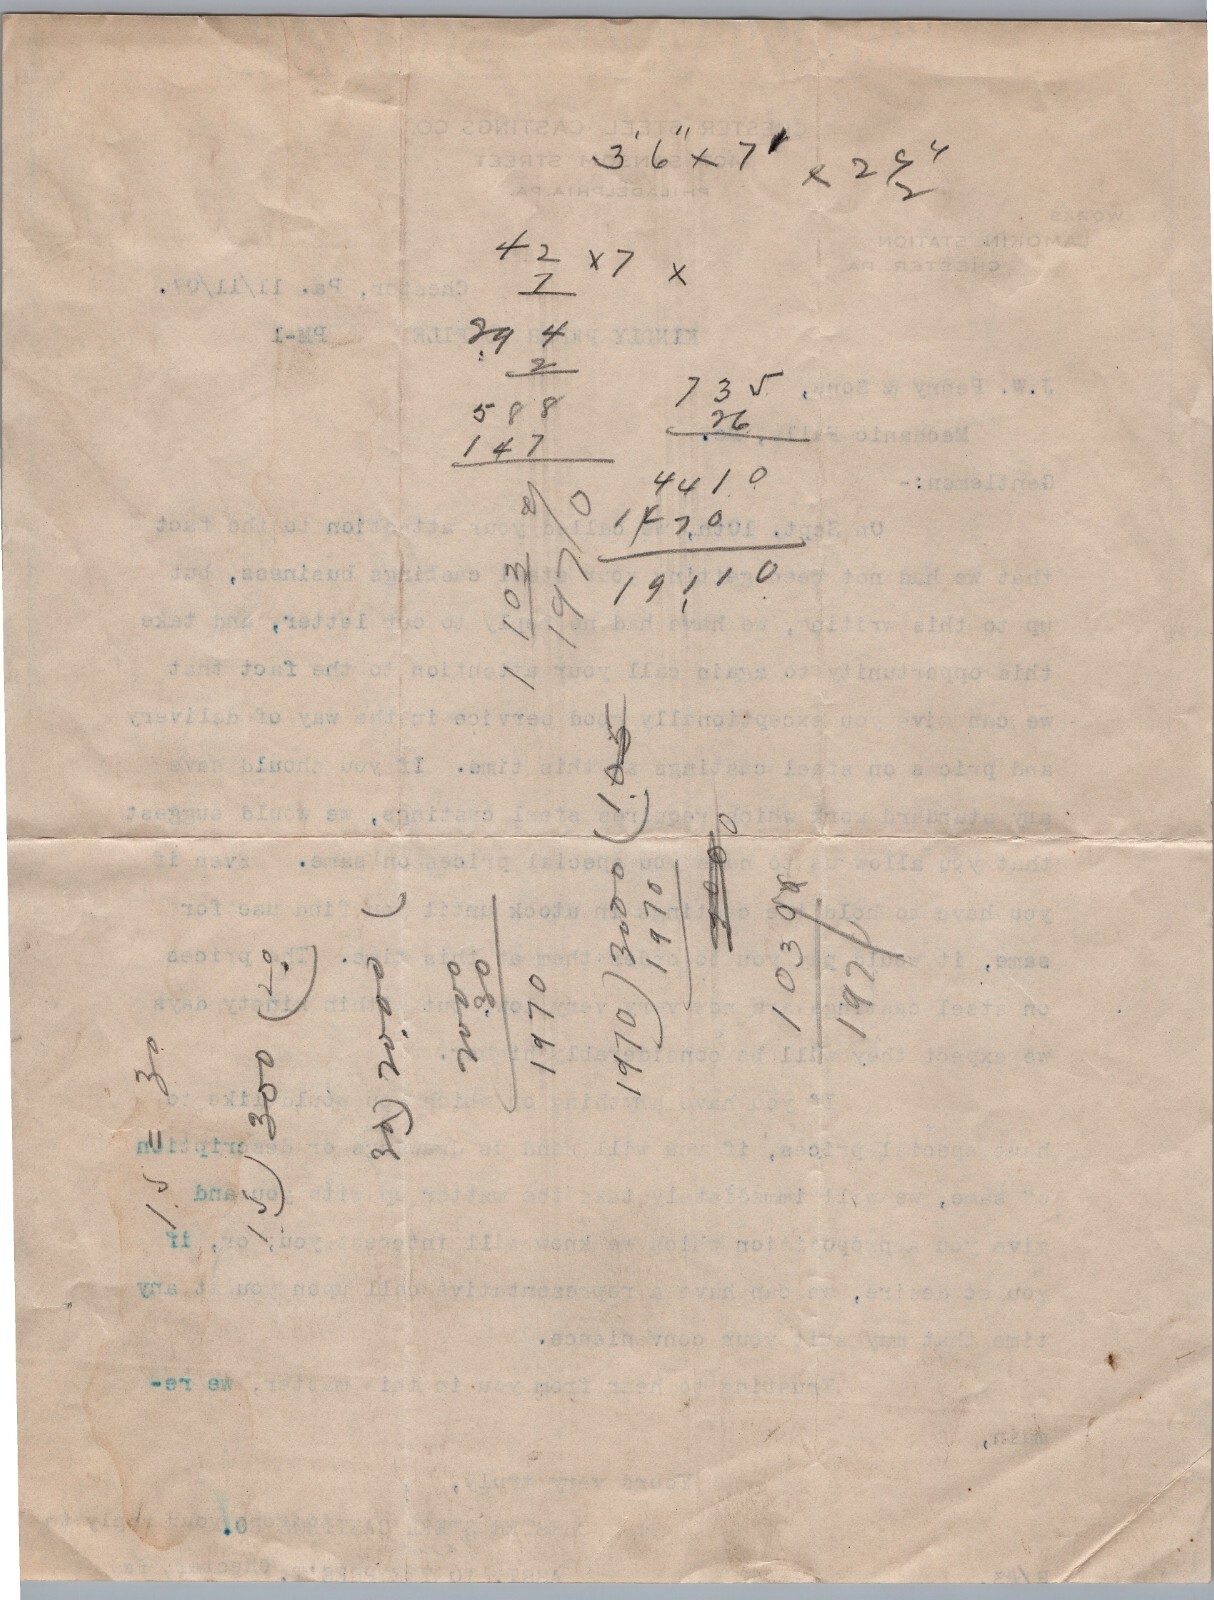 3' 6" x 7' x 2
42 x 7 x
7
294
2
588
147
735
26
4410
1470
19110
1103
1970
1.5 = 30
1.5) 300 (20
30) 20.00 (
2000
30
1970
1970) 3000 (1.05
1970
1039
197
CHESTER STEEL CASTINGS CO
STREET
PHILADELPHIA, PA.
WORKS
LAMOKIN STATION
CHESTER PA.
Chester, Pa. 11/11/07.
KINDLY
PM-1
J.W. Penny & Sons,
Mechanic Falls,
Gentlemen:-
On Sept. 10th, we called your attention to the fact
that we has not been getting your steel castings business, but
up to this writing, we have had no reply to our letter, and take
this opportunity to again call your attention to the fact that
we can give you exceptionally good service in the way of delivery
and prices on steel castings at this time. If you should have
any standard work which requires steel castings, we would suggest
that you allow us to name you special prices on same. Even if
you have to hold the castings in stock until you find use for
same, it would pay you to order them at this time. The prices
on steel castings are now very, very low, but within ninety days
we expect they will be considerably higher.
If you have anything on which you would like to
have special prices, if you will send us drawings or description
of same, we will immediately take the matter up with you and
give you a proposition which we know will interest you; or, if
you so desire, we can have a representative call upon you at any
time that may suit your convenience.
Trusting to hear from you in this matter, we re-
main,
Yours very truly,
CHESTER STEEL CASTINGS CO.